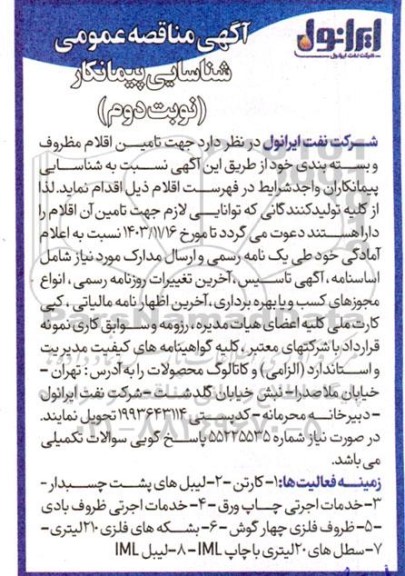 ایرانول
شرکت نفت ایرانول
آگهی مناقصه عمومی
شناسایی پیمانکار
(نوبت دوم)
شرکت نفت ایرانول در نظر دارد جهت تامین اقلام مظروف
و بسته بندی خود از طریق این آگهی نسبت به شناسایی
پیمانکاران واجدشرایط در فهرست اقلام ذیل اقدام نماید. لذا
از کلیه تولیدکنندگانی که توانایی لازم جهت تامین آن اقلام را
دارا هستند دعوت می گردد تا مورخ ۱۴۰۳/۱/۱۶ نسبت به اعلام
آمادگی خود طی یک نامه رسمی و ارسال مدارک مورد نیاز شامل
اساسنامه ، آگهی تاسیس ، آخرین تغییرات روزنامه رسمی ، انواع
مجوزهای کسب و یا بهره برداری ، آخرین اظهار نامه مالیاتی ، کپی
کارت ملی کلیه اعضای هیات مدیره ، رزومه و سوابق کاری نمونه
قرارداد با شرکتهای معتبر ، کلیه گواهینامه های کیفیت مدیریت
و استاندارد (الزامی) و کاتالوگ محصولات را به آدرس : تهران -
خیابان ملاصدرا - نبش خیابان گلدشت - شرکت نفت ایرانول
- دبیرخانه محرمانه - کدپستی ۱۹۹۳۶۴۳۱۱۴ تحویل نمایند.
در صورت نیاز شماره ۵۵۲۲۵۵۳۵ پاسخ گویی سوالات تکمیلی
می باشد.
زمینه فعالیت ها: ۱- کارتن -۲- لیبل های پشت چسبدار -
۳- خدمات اجرتی چاپ ورق -۴- خدمات اجرتی ظروف بادی
-۵- ظروف فلزی چهار گوش -۶- بشکه های فلزی ۲۱۰لیتری -
۷- سطل های ۲۰لیتری با چاپ IML -۸- لیبل IML
ParsNamadData
۰۲۱-۸۸۳۴۹۶۷۰-۵